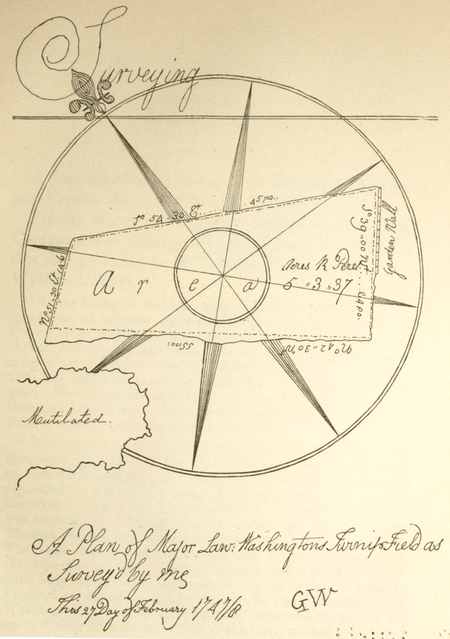 Surveying
45 po.
Garden Wall
Area
Acres R Perc
5 .. 3 .. 37
55 po.
Mutilated.
A Plan of Major Law: Washingtons Turnip Field as
Survey'd by me
This 27 Day of February 1747/8
GW